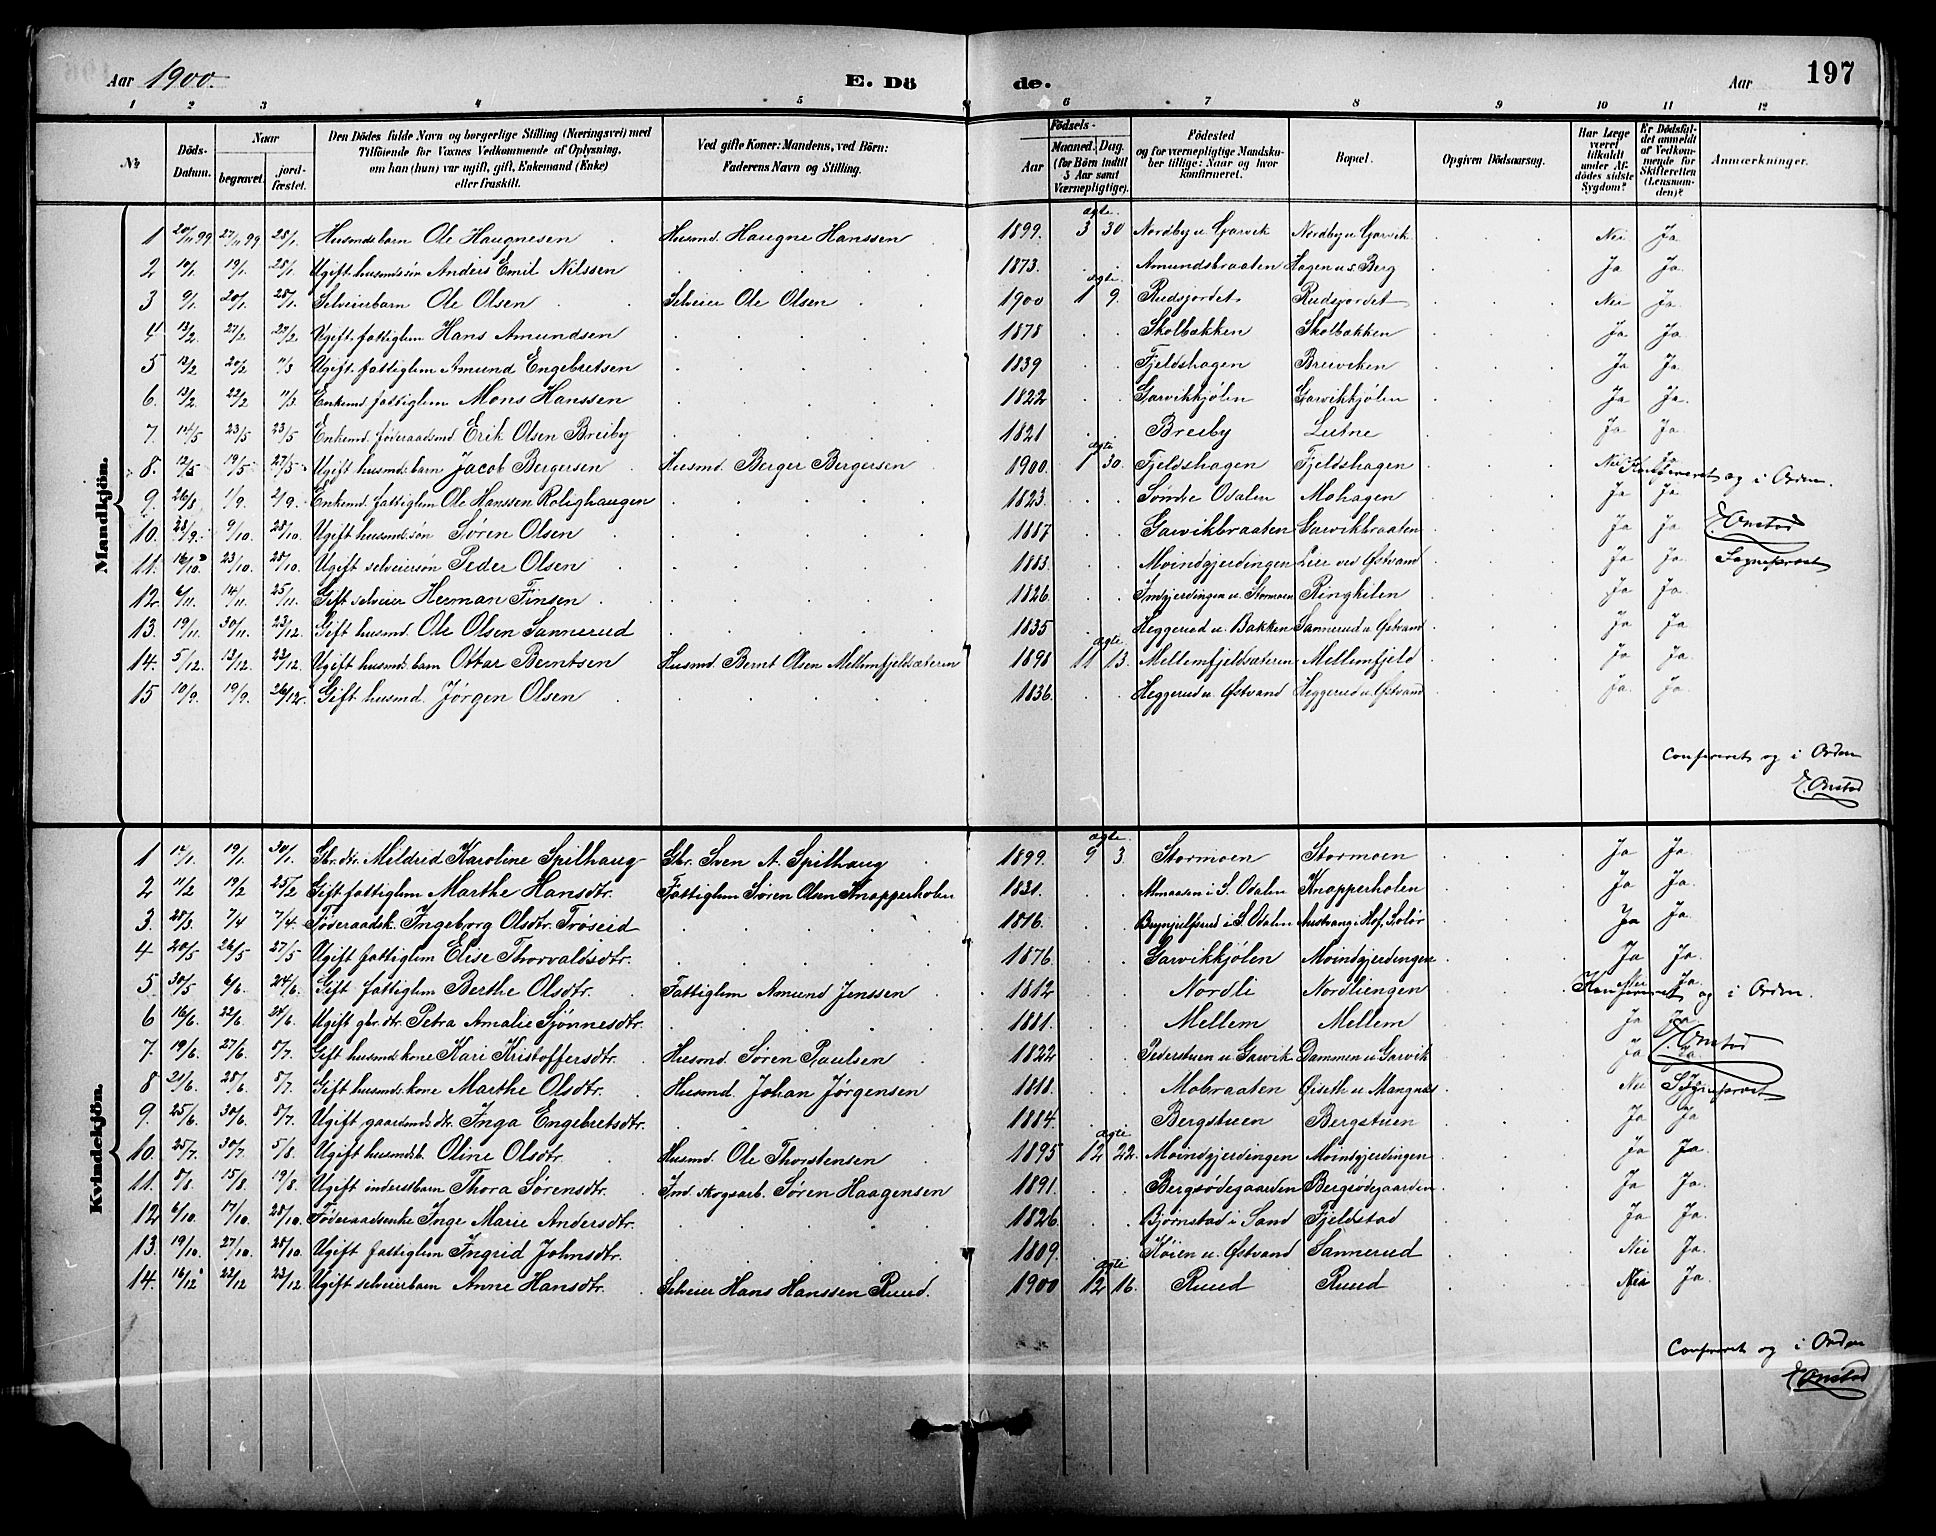 Aar 1900. E. Döde. Aar 197
1 2 3 4 5 6 7 8 9 10 11 12
№ Döds-Datum. Naar begravet. jordfæstet. Den Dödes fulde Navn og borgerlige Stilling (Næringsvei) med Tilföiende for Voxnes Vedkommende af Oplysning, om han (hun) var ugift, gift, Enkemand (Enke) eller fraskilt. Ved gifte Koner: Mandens, ved Börn: Faderens Navn og Stilling. Födsels- Aar Maaned. Dag. (for Börn indtil 5 Aar samt Værnepligtige). Födested og for værnepligtige Mandskaber tillige: Naar og hvor konfirmeret. Bopæl. Opgiven Dödsaarsag. Har Læge været tilkaldt under Afdödes sidste Sygdom? Er Dödsfaldet anmeldt af Vedkommende for Skifteretten (Lensmanden)? Anmærkninger.
Mandkjön.
1 20/11 99 27/11 99 28/1. Husmdsbarn Ole Haugnesen Husmd. Haugne Hanssen 1899. ægte. 3 30 Nordby u. Garvik Nordby u. Garvik Nei Ja
2 10/1. 19/1. 28/1. Ugift husmdssön Anders Emil Nilssen 1873. Amundsbraaten Hagen u. s. Berg Ja Ja.
3 9/1. 20/1. 28/1. Selveierbarn Ole Olsen Selveier Ole Olsen 1900 ægte. 1 9. Rudsjordet Rudsjordet Nei Ja
4 13/2. 27/2 27/2. Ugift fattiglem Hans Amundsen 1878 Skolbakken Skolbakken Ja Ja.
5 12/2 20/2 11/3 Ugift fattiglem Amund Engebretsen 1839 Fjeldshagen Breiviken Ja Ja.
6. 13/2. 22/2 11/3 Enkemd. fattiglem Mons Hanssen 1822 Garvikkjølen Garvikkjølen Ja Ja.
7. 14/5 23/5 23/5 Enkemd. föderaadsmd Erik Olsen Breiby 1821 Breiby Lutne Ja Ja.
8. 12/5 19/5 27/5 Ugift husmds.barn Jacob Bergersen Husmd Berger Bergersen 1900. ægte 1 30. Fjeldshagen Fjeldshagen Nei Ja
Konfereret og i Orden.
9. 26/8 1/9. 2/9. Enkemd. fattiglem Ole Hanssen Rolighaugen 1823. Søndre Odalen Mohagen Ja Ja
10. 28/9. 9/10. 28/10. Ugift husmdssön Søren Olsen 1887 Garvikbraaten Garvikbraaten Ja Ja E. Onstad
11. 16/10 23/10. 28/10. Ugift selveiersön Peder Olsen 1883. Moindgjerdingen Lier ved Østvand Ja Ja. Sogneprest
12. 6/11. 14/11. 25/11. Gift selveier Herman Finsen 1826. Indgjerdingen u. Stormoen Ringhilen Ja Ja.
13. 19/11. 30/11. 23/12. Gift husmd. Ole Olsen Sannerud 1835 Heggerud u. Bakken Sannerud u Østvand Ja Ja.
14. 5/12. 13/12. 23/12. Ugift husmds.barn Ottar Berntsen Husmd Bernt Olsen Mellemfjeldsæteren 1898 ægte. 11 13. Mellemfjeldsæteren Mellemfjeld Ja Ja.
15 10/9. 19/9. 26/12. Gift husmd. Jørgen Olsen 1836. Heggerud u. Østvand Heggerud u. Østvand Ja. Ja.
Confereret og i Orden
E. Onstad
Kvindekjön.
1 12/1. 19/1. 30/1. Gbr.dtr. Mildrid Karoline Spilhaug Gbr. Sven A. Spilhaug 1899. ægte. 9 3. Stormoen Stormoen Ja Ja.
2 11/2 19/2 25/2 Gift fattiglem Marthe Hansdtr. Fattiglem Søren Olsen Knapperholen 1831. Almaasen i S. Odalen Knapperholen Ja Ja.
3. 28/3. 7/4 7/4. Föderaadsk. Ingeborg Olsdtr. Trøseid 1816. Brynjulfsrud i S. Odalen Austvang i Hof, Solør Ja Ja.
4 20/5 26/5 27/5 Ugift fattiglem Elise Thorvaldsdtr. 1876. Garvikkjølen Moindgjerdingen Ja Ja.
5 30/5 6/6. 24/6. Gift fattiglem Berthe Olsdtr. Fattiglem Amund Jenssen 1812 Nordli Nordliengen Nei Ja.
Konfereret og i Orden.
6 16/6. 22/6. 28/6. Ugift gbr.dtr. Petra Amalie Sjönnesdtr. 1881. Mellem Mellem Ja Ja
E. Onstad
7. 19/6. 27/6. 8/7. Gift husmds.kone Kari Kristoffersdtr. Husmd Søren Paulsen 1822. Pederstuen u Garvik Dammen u Garvik Ja Ja
8 21/6. 28/6. 8/7. Gift husmds.kone Marthe Olsdtr. Husmd. Johan Jørgensen 1818. Mobraaten Giseth u Mangnæs Nei Ja
Sogneprest
9. 25/6. 30/6. 8/7. Ugift gaardmds.dtr. Inga Engebretsdtr. 1884. Bergstuen Bergstuen Ja Ja
10. 25/7. 30/7. 5/8. Ugift husmdsb. Oline Olsdtr. Husmd. Ole Thorstensen 1895 ægte 12 22. Moindgjerdingen Moindgjerdingen Ja. Ja.
11. 8/8. 15/8 19/8. Ugift inderstbarn Thora Sørensdtr. Ind. skogsarb. Søren Haagensen 1891. Bergsödegaarden Bergsödegaarden Ja Ja.
12 6/10. 17/10. 28/10. Föderaadsenke Inge Marie Andersdtr. 1826. Bjørnstad i Sand Fjeldstad Ja Ja.
13. 19/10. 27/10. 28/10. Ugift fattiglem Ingrid Johnsdtr. 1809. Koien u. Østvand Sannerud Nei Ja.
14. 16/12 22/12 23/12. Ugift selveierbarn Anne Hansdtr. Selveier Hans Hanssen Ruud. 1900 ægte 12 16. Ruud Ruud Nei Ja.
Confereret og i Orden
E. Onstad